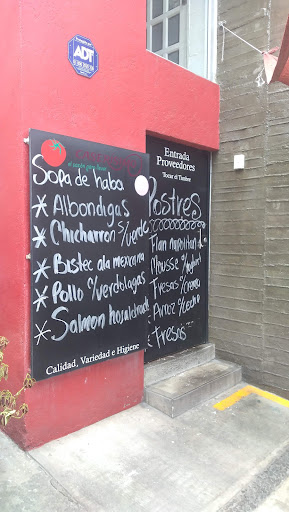 ADT
Sopa de haba
* Albondigas
* Chicharron s/verde
* Bistec ala mexicana
* Pollo c/verdolagas
* Salmon
Calidad, Variedad e Higiene
Entrada
Proveedores
Tocar el Timbre
Postres
Flan napolitano
Mousse
Fresas c/crema
Arroz c/leche
Fresas